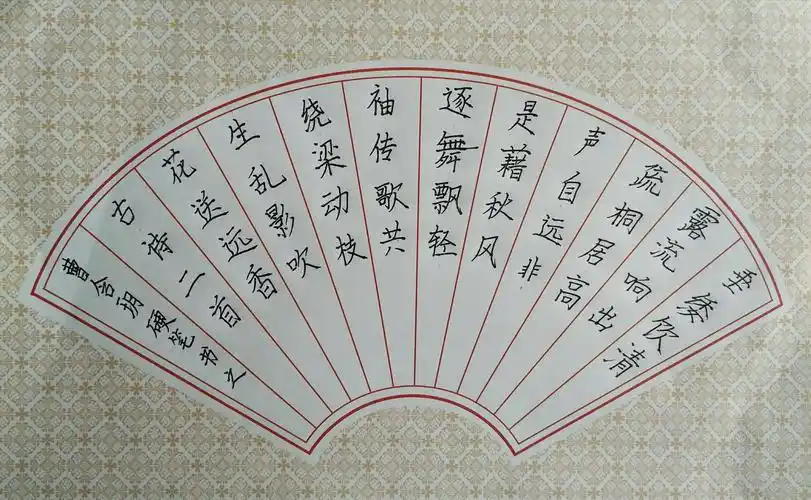 垂緌饮清
露流响出
疏桐居高
声自远非
是藉秋风
逐舞飘轻
袖传歌共
绕梁动枝
生乱影吹
花送远香
古诗二首
曹含玥硬笔书之